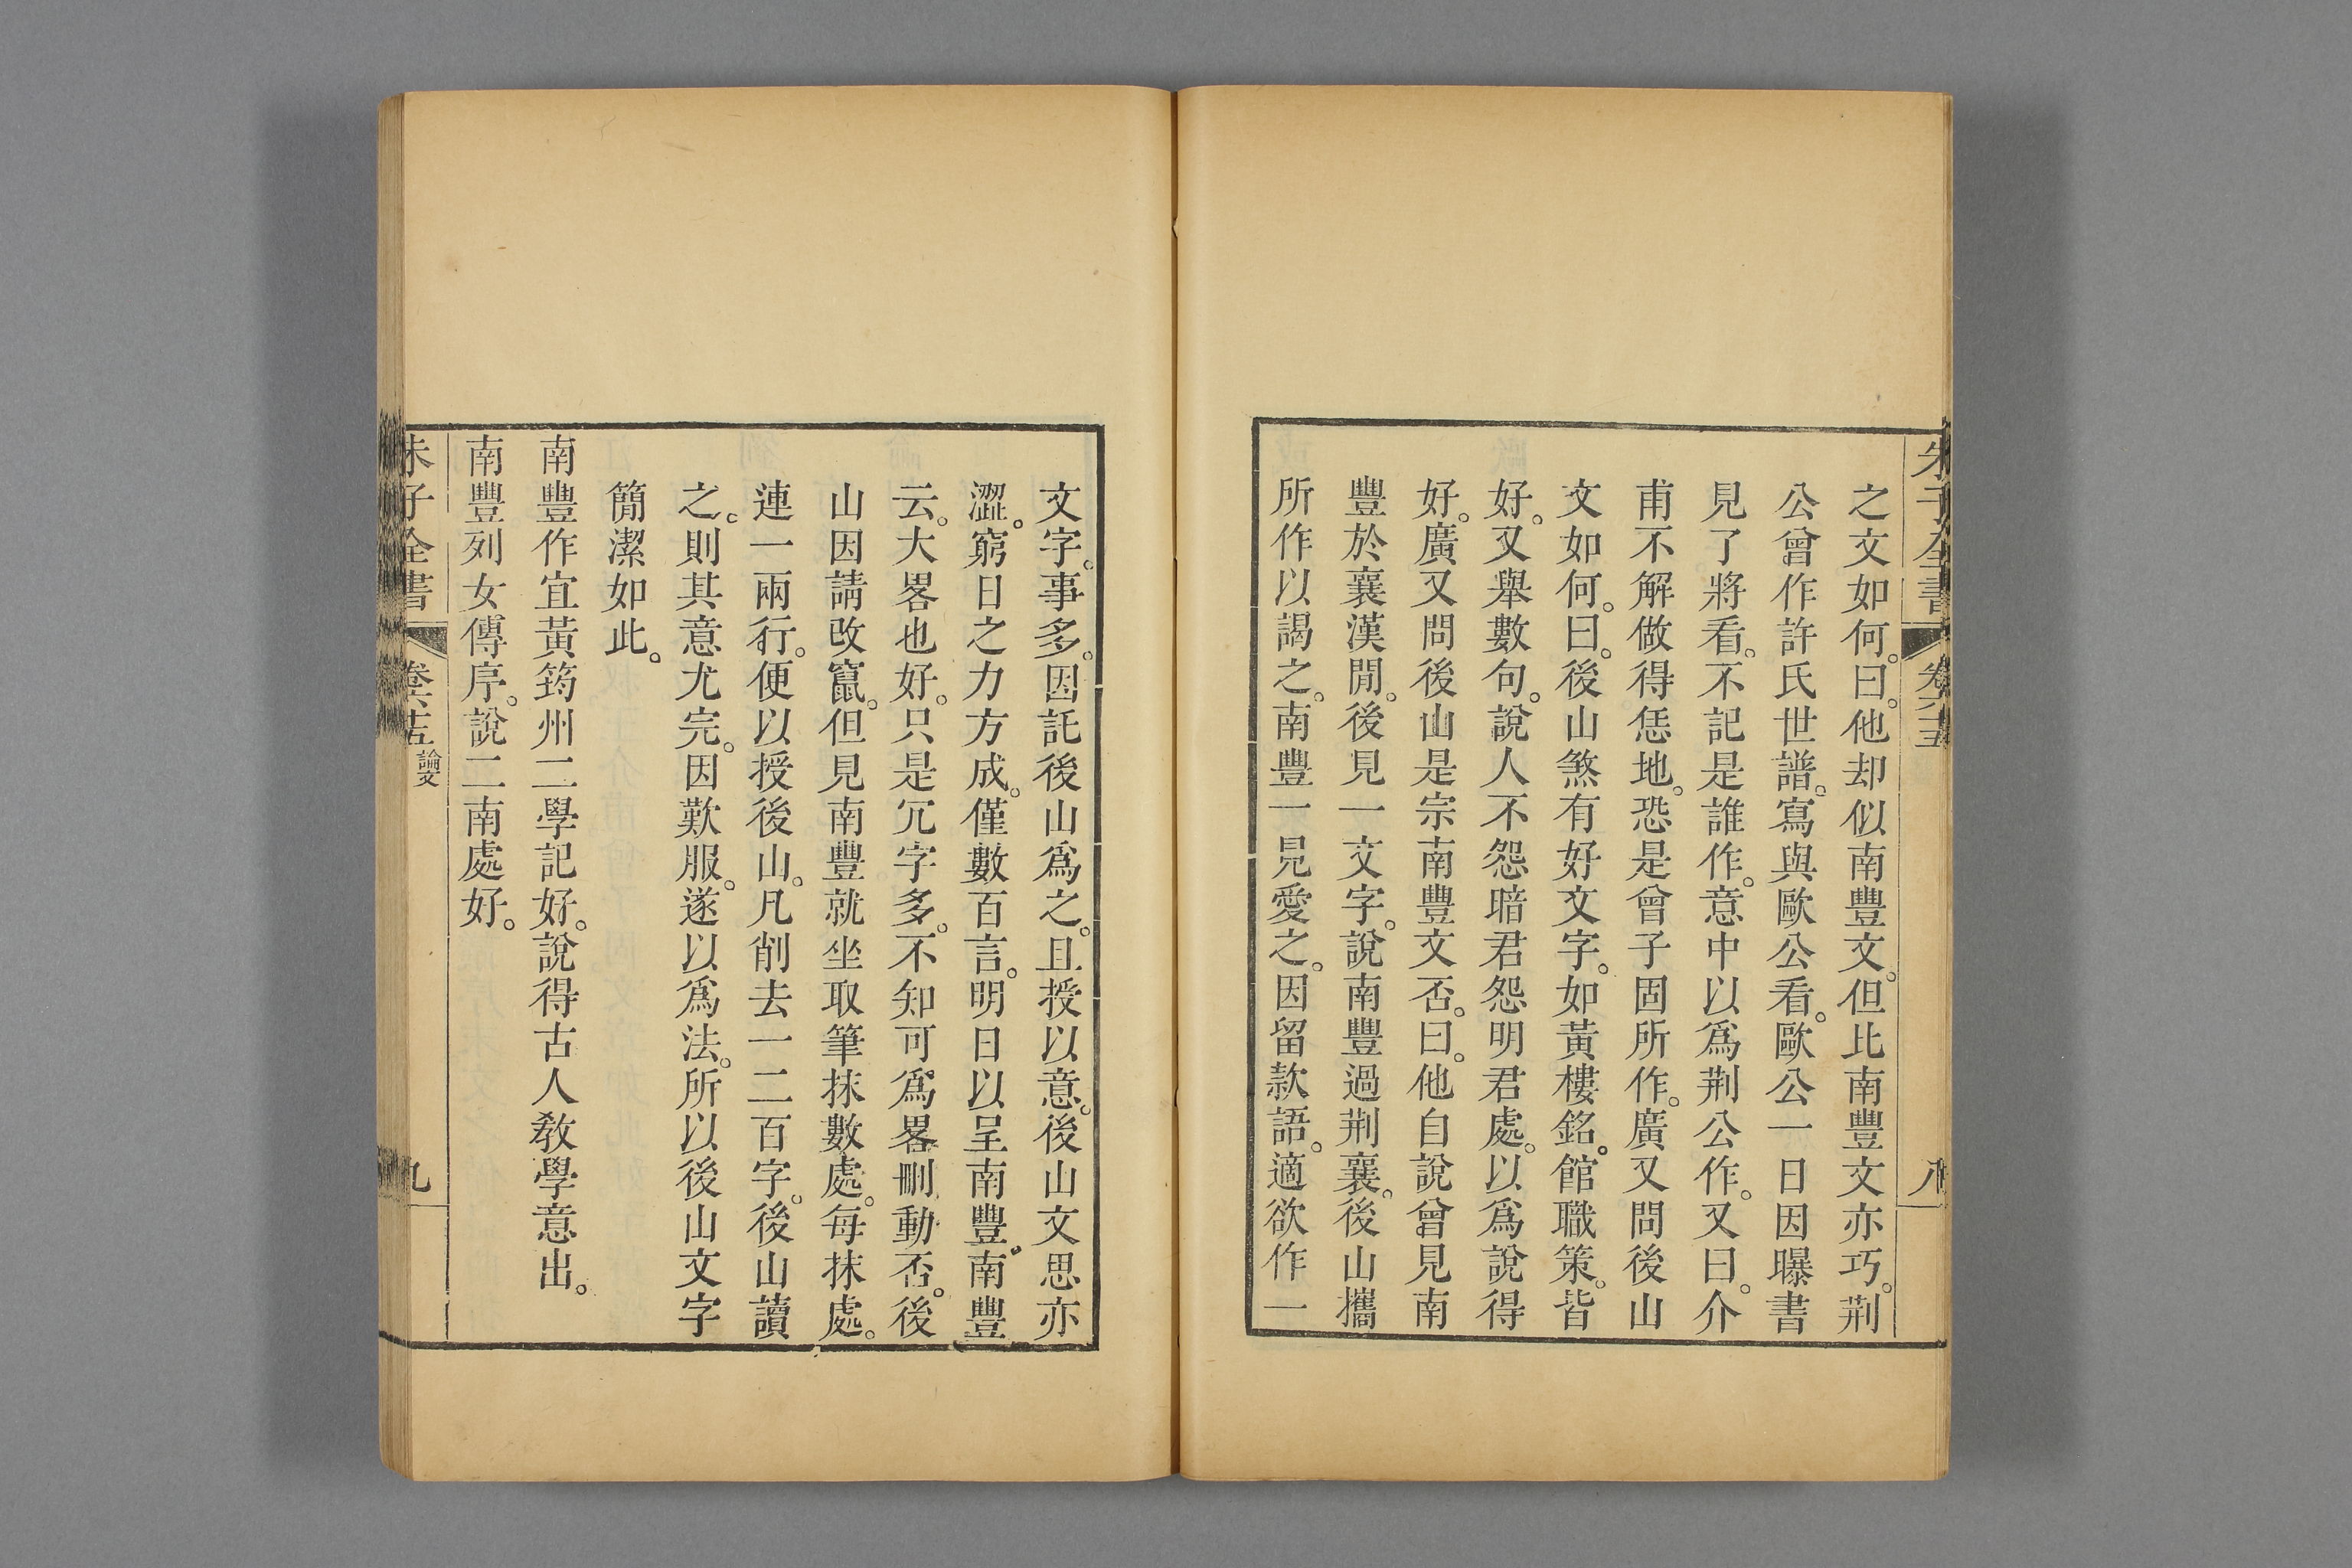 朱子全書 卷六十五 八
之文如何。曰。他却似南豐文。但比南豐文亦巧。荆
公曾作許氏世譜。寫與歐公看。歐公一日因曝書
見了將看。不記是誰作。意中以爲荆公作。又曰。介
甫不解做得恁地。恐是曾子固所作。廣又問後山
文如何。曰。後山煞有好文字。如黃樓銘。館職策。皆
好。又舉數句。說人不怨暗君怨明君處。以爲說得
好。廣又問後山是宗南豐文否。曰。他自說曾見南
豐於襄漢閒。後見一文字。說南豐過荆襄。後山攜
所作以謁之。南豐一見愛之。因留款語。適欲作一
文字。事多。因託後山爲之。且授以意。後山文思亦
澀。窮日之力方成。僅數百言。明日以呈南豐。南豐
云。大畧也好。只是冗字多。不知可爲畧刪動否。後
山因請改竄。但見南豐就坐取筆抹數處。每抹處。
連一兩行。便以授後山。凡削去一二百字。後山讀
之。則其意尤完。因歎服。遂以爲法。所以後山文字
簡潔如此。
南豐作宜黃筠州二學記好。說得古人敎學意出。
南豐列女傳序。說二南處好。
朱子全書 卷六十五 論文 九